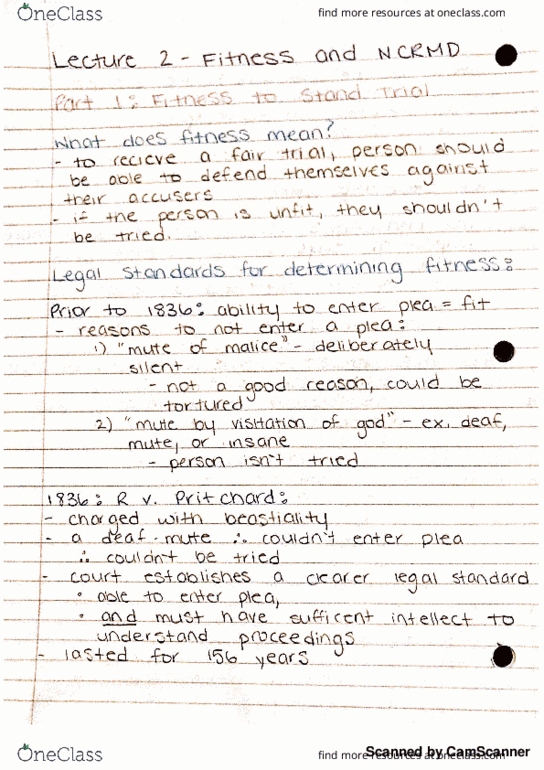 OneClass
find more resources at oneclass.com
Lecture 2 - Fitness and NCRMD
Part 1: Fitness to Stand Trial
What does fitness mean?
- to recieve a fair trial, person should
be able to defend themselves against
their accusers
- if the person is unfit, they shouldn't
be tried.
Legal standards for determining fitness:
Prior to 1836: ability to enter plea = fit
- reasons to not enter a plea:
1) "mute of malice" - deliberately
silent
- not a good reason, could be
tortured
2) "mute by visitation of god" - ex. deaf,
mute, or insane
- person isn't tried
1836: R v. Pritchard:
- charged with beastiality
- a deaf-mute ∴ couldn't enter plea
∴ couldn't be tried
- court establishes a clearer legal standard
• able to enter plea,
• and must have sufficent intellect to
understand proceedings
- lasted for 156 years
OneClass
find more resources at oneclass.com
Scanned by CamScanner